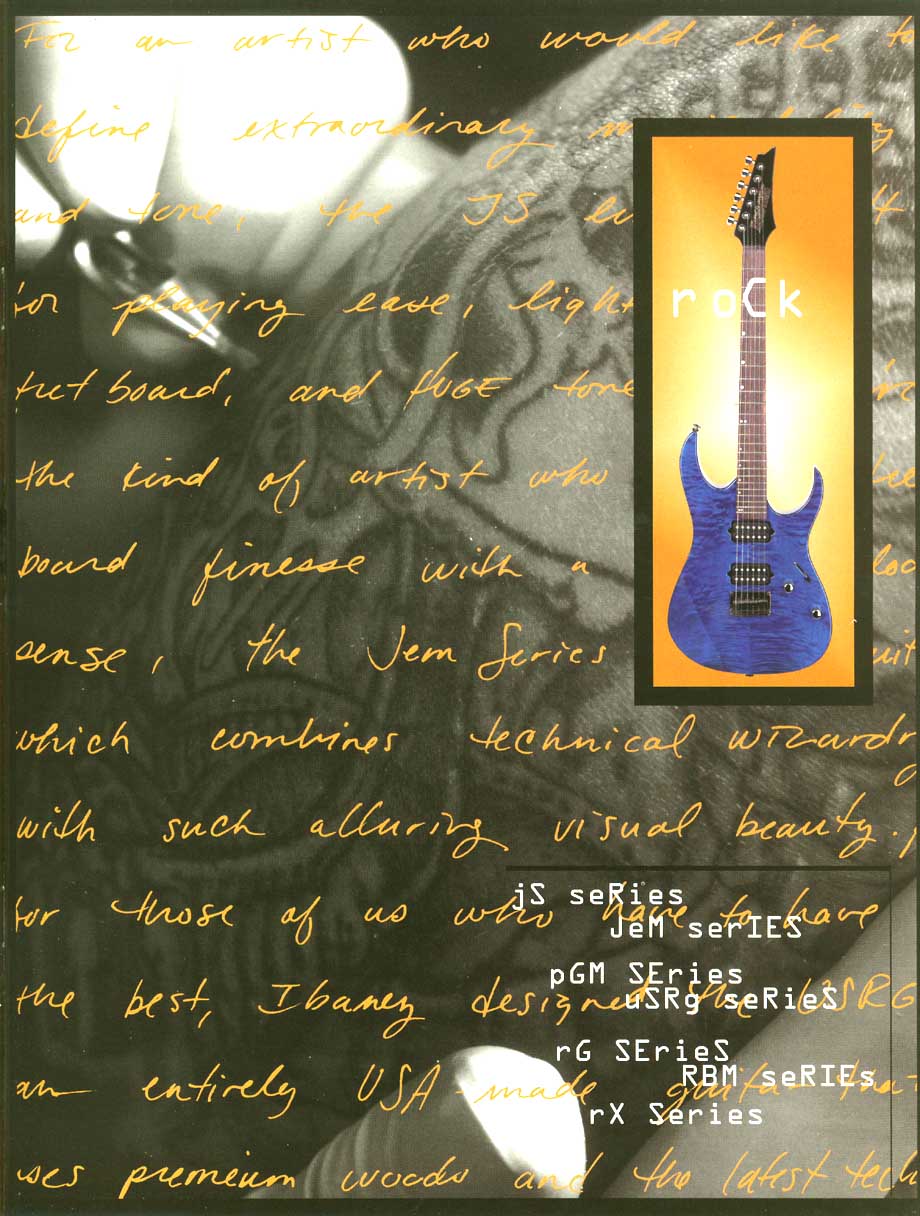 For an artist who would like to
define extraordinary
and tone, the JS
for playing ease, light
fretboard, and HUGE tone
the kind of artist who
board finesse with a
sense, the Jem Series
which combines technical wizardry
with such alluring visual beauty.
for those of us who have to have
the best, Ibanez designed the USRG
an entirely USA-made guitar that
uses premium woods and the latest tech
roCk
jS seRies
JeM serIES
pGM SEries
uSRg seRieS
rG SErieS
RBM seRIEs
rX Series